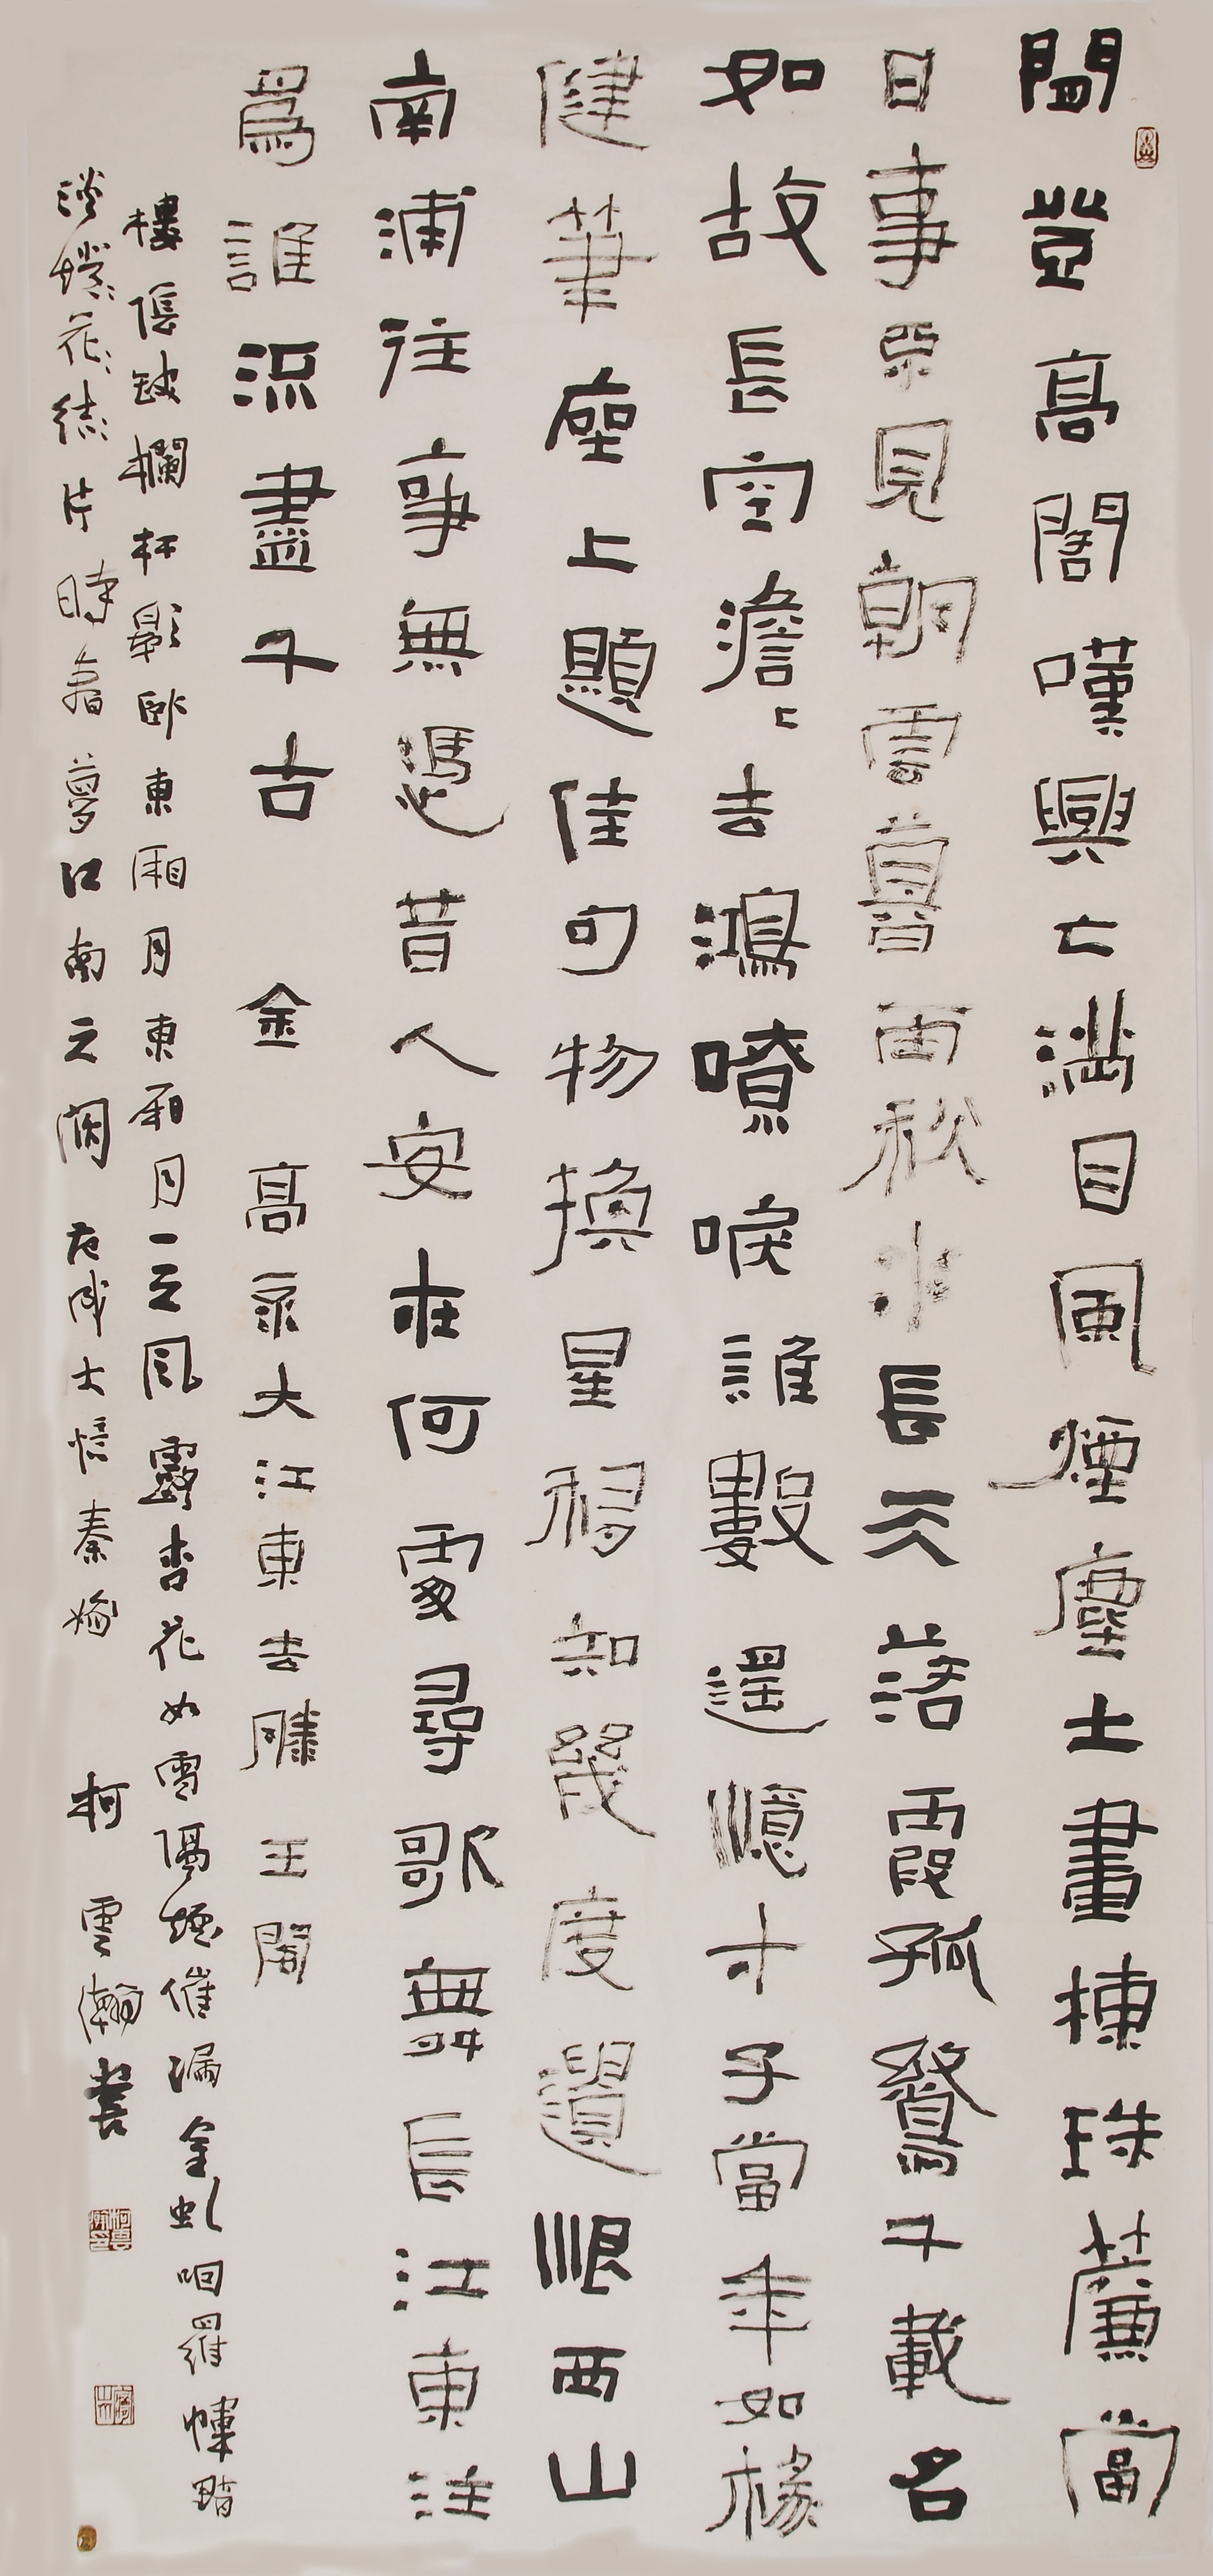 閒登高閣嘆興亡滿目風煙塵土畫棟珠簾當
日事不見朝雲暮雨秋水長天落霞孤鶩千載名
如故長空澹〻去鴻嘹唳誰數遥憶才子當年如椽
健筆座上題佳句物換星移知幾度遺恨西山
南浦往事無憑昔人安在何處尋歌舞長江東注
爲誰流盡千古 金 高永大江東去滕王閣
樓陰缺欄杆影卧東廂月東廂月一天風露杏花如雪隔煙催漏金虬咽羅幃黯
淡燈〻花〻結〻片時春夢江南天闊 范成大憶秦娥 柯雲瀚書